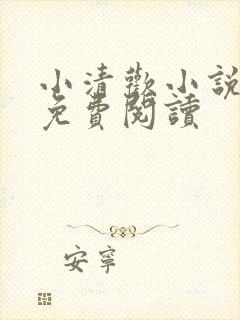 小清歡小說
免費閱讀
安寧